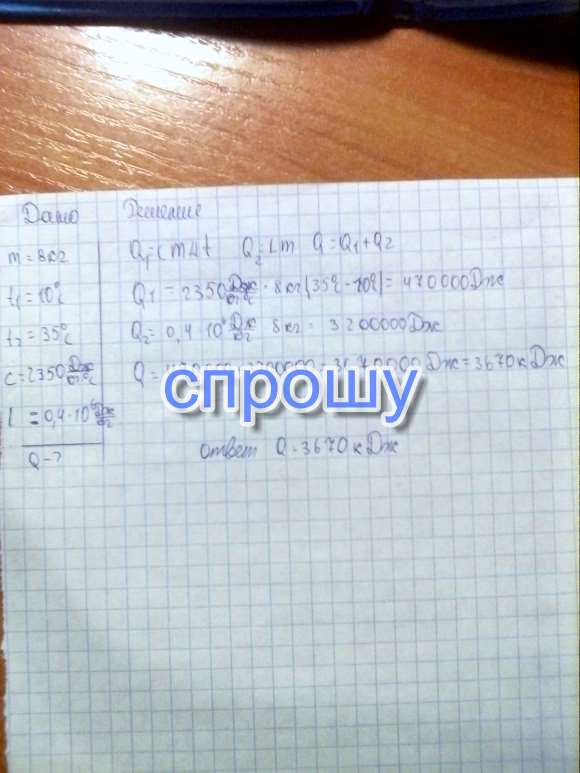 Дано
m = 8кг
t₁ = 10°c
t₂ = 35°c
c = 2350 Дж/кг°c
L = 0,4·10⁶ Дж/кг
Q-?
Решение
Q₁=cm∆t Q₂=Lm Q=Q₁+Q₂
Q₁ = 2350 Дж/кг°c · 8кг(35°c-10°c)= 470000Дж
Q₂= 0,4·10⁶ Дж/кг 8кг = 3200000Дж
Q= 3670000Дж=3670кДж
ответ Q=3670кДж
спрошу